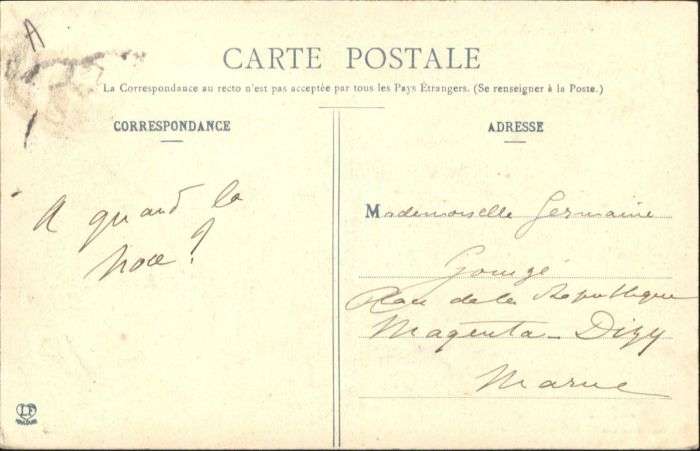 A
CARTE POSTALE
La Correspondance au recto n'est pas acceptée par tous les Pays Étrangers. (Se renseigner à la Poste.)
CORRESPONDANCE
A quand la
noce?
ADRESSE
Mademoiselle Germaine
Gougé
Place de la République
Magenta-Dizy
Marne
LF
TOULOUSE